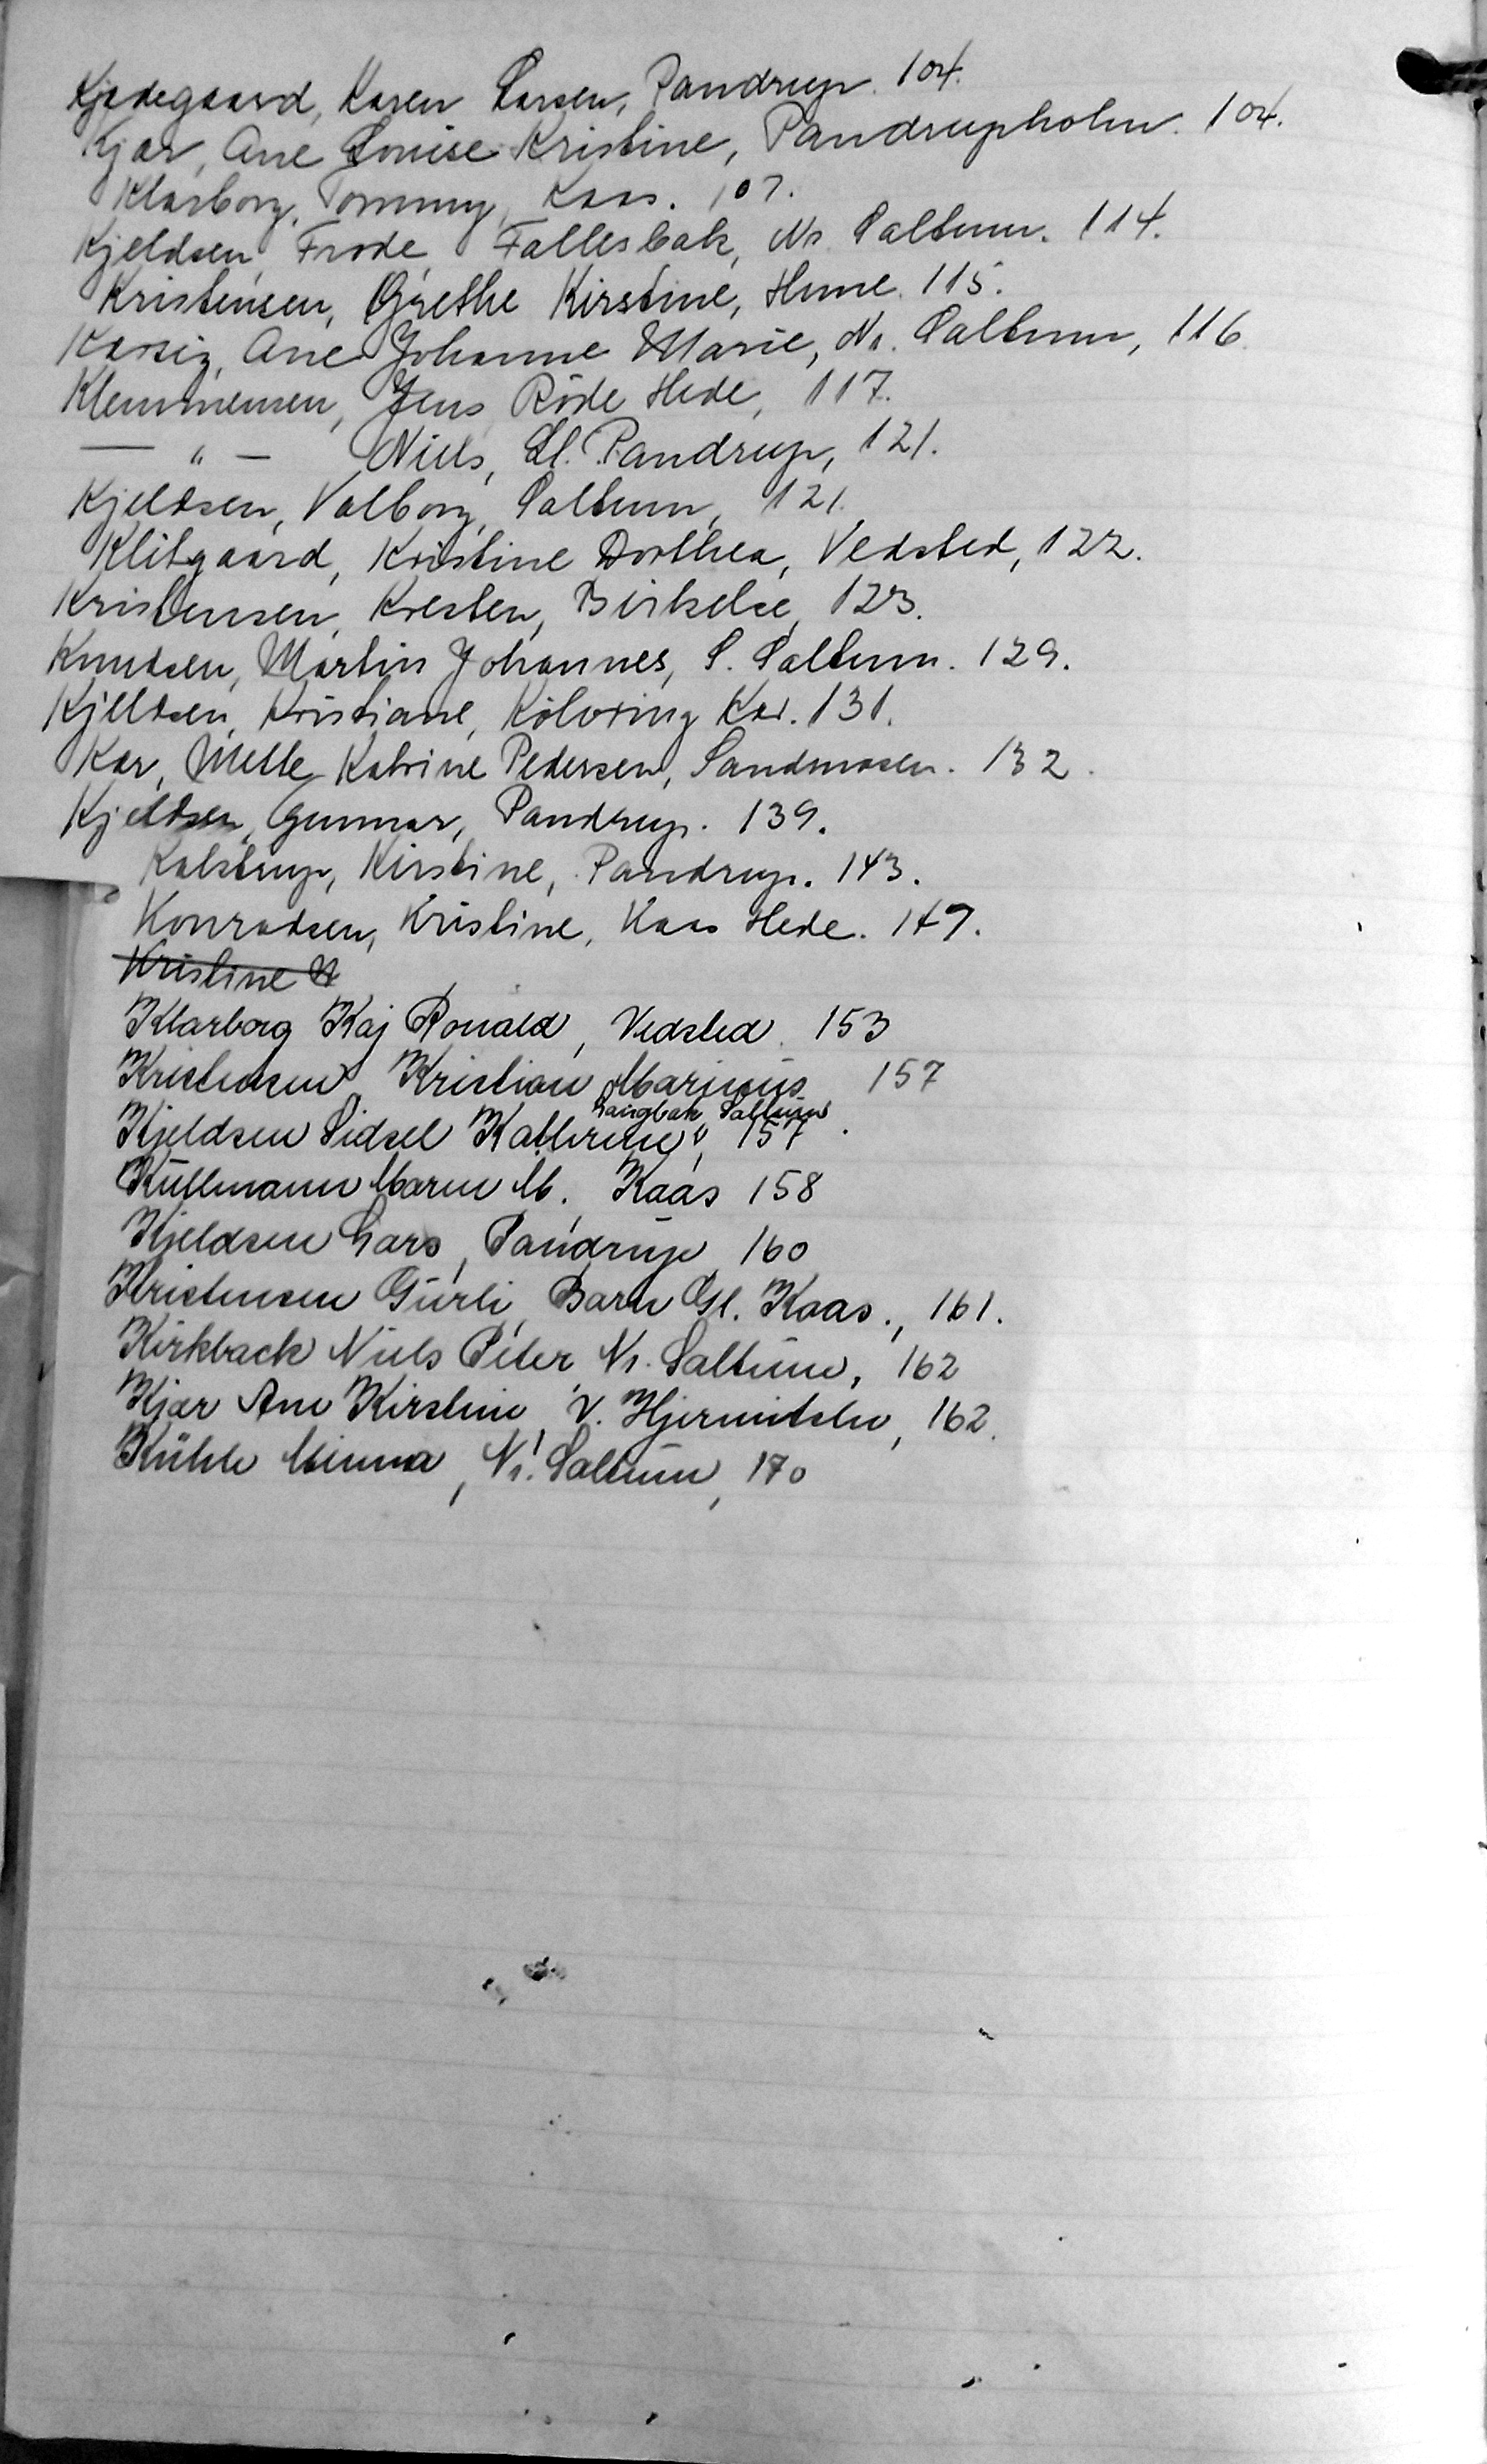 Kjædegaard, Karen Larsen, Pandrup. 104.
Kjær, Ane Louise Kristine, Pandrupholm. 104.
Klarborg, Tommy, Kaas. 107.
Kjeldsen, Frode, Fallesbæk, Nr. Saltum. 114.
Kristensen, Grethe Kirstine, Hune. 115.
Kassig, Ane Johanne Marie, Nr. Saltum, 116.
Klemmensen, Jens, Röde Hede, 117.
— " — Niels, Ll. Pandrup, 121.
Kjeldsen, Valborg, Saltum, 121.
Klitgaard, Kristine Dorthea, Vedsted, 122.
Kristensen, Kresten, Birkelse, 123.
Knudsen, Martin Johannes, S. Saltum. 129.
Kjeldsen, Kristiane, Kölvring Kær. 131.
Kær, Mette Katrine Pedersen, Sandmosen. 132.
Kjeldsen, Gunnar, Pandrup. 139.
Kalstrup, Kirstine, Pandrup. 143.
Konradsen, Kristine, Kaas Hede. 149.
Kristine
Klarborg Kaj Ronald, Vedsted. 153
Kristensen, Kristian Marinus 157
Langbæk, Saltum
Kjeldsen Sidsel Kathrine, 157.
Küllmann Maren M. Kaas 158
Kjeldsen Lars, Pandrup 160
Kristensen Gurli, Barn Gl. Kaas., 161.
Kirkbæck Niels Peter, Nr. Saltum, 162
Kjær Ane Kirstine, V. Hjermitslev, 162.
Kühle Minna, Nr. Saltum, 170